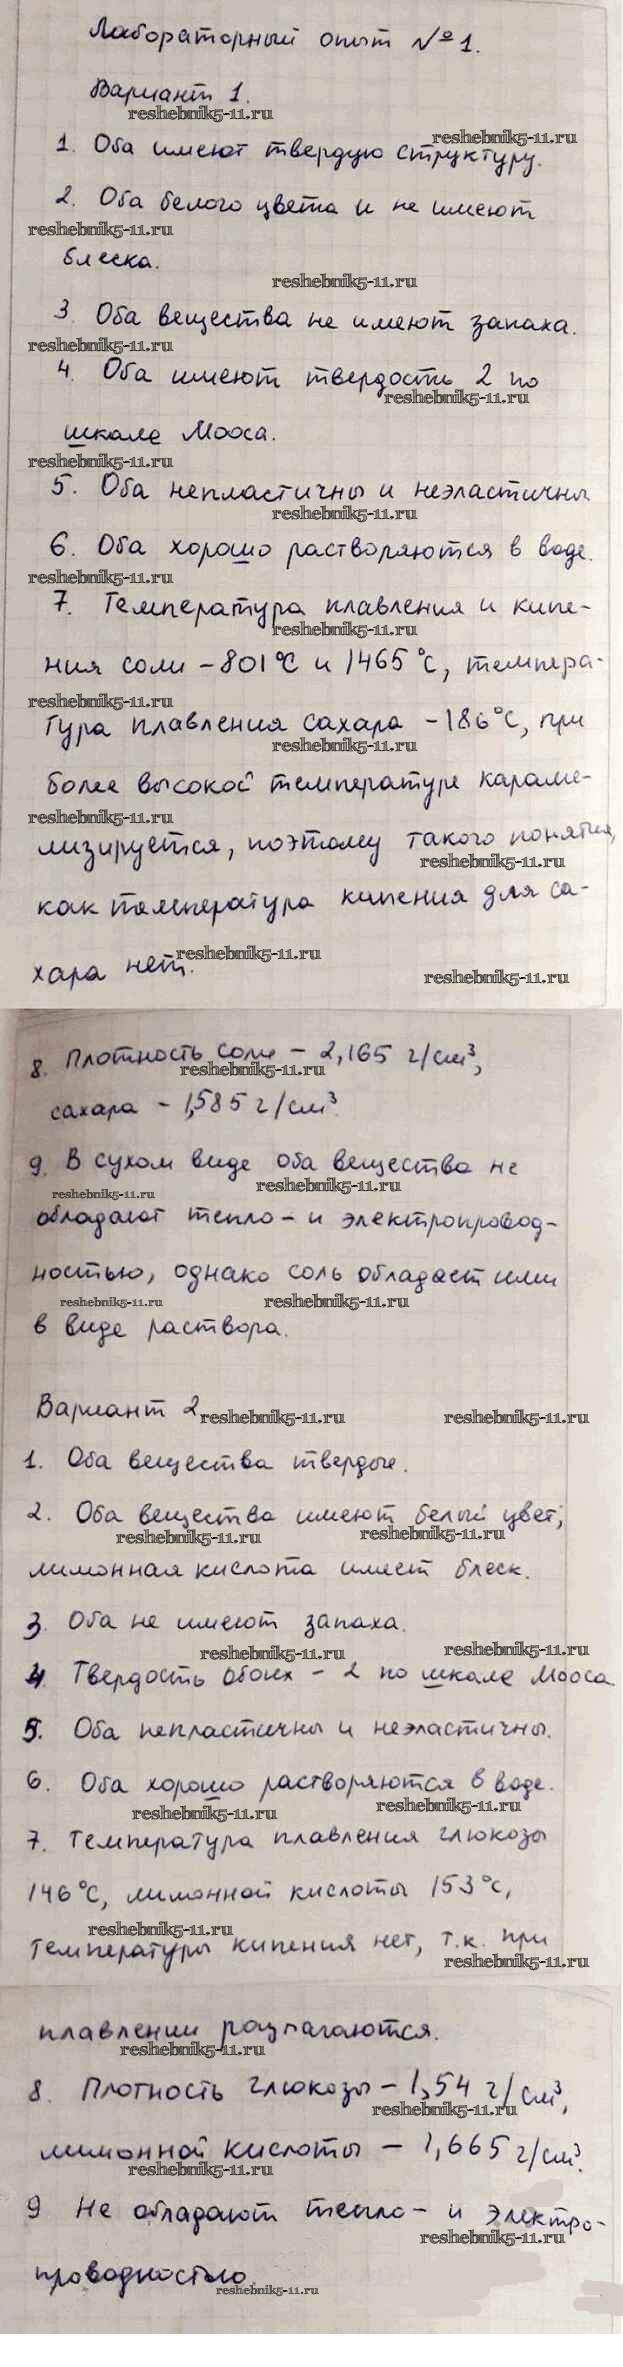 Лабораторный опыт №1.
Вариант 1.
reshebnik5-11.ru
reshebnik5-11.ru
1. Оба имеют твердую структуру.
2. Оба белого цвета и не имеют
reshebnik5-11.ru
блеска.
reshebnik5-11.ru
3 Оба вещества не имеют запаха.
reshebnik5-11.ru
4. Оба имеют твердость 2 по
reshebnik5-11.ru
шкале Мооса.
reshebnik5-11.ru
5. Оба непластичны и неэластичны
reshebnik5-11.ru
6. Оба хорошо растворяются в воде.
reshebnik5-11.ru
7. Температура плавления и кипе-
reshebnik5-11.ru
ния соли -801°С и 1465°С, темпера-
reshebnik5-11.ru
тура плавления сахара -186°С, при
reshebnik5-11.ru
более высокой температуре караме-
reshebnik5-11.ru
лизируется, поэтому такого понятия,
reshebnik5-11.ru
как температура кипения для са-
хара нет.
reshebnik5-11.ru
reshebnik5-11.ru
8. Плотность соли - 2,165 г/см³,
reshebnik5-11.ru
сахара - 1,585 г/см³.
9. В сухом виде оба вещества не
reshebnik5-11.ru
reshebnik5-11.ru
обладают тепло- и электропровод-
ностью, однако соль обладает ими
reshebnik5-11.ru
reshebnik5-11.ru
в виде раствора.
Вариант 2
reshebnik5-11.ru
reshebnik5-11.ru
1. Оба вещества твердые.
2. Оба вещества имеют белый цвет,
reshebnik5-11.ru
reshebnik5-11.ru
лимонная кислота имеет блеск.
3. Оба не имеют запаха.
reshebnik5-11.ru
reshebnik5-11.ru
4 Твердость обоих - 2 по шкале Мооса.
5. Оба непластичны и неэластичны.
6. Оба хорошо растворяются в воде.
reshebnik5-11.ru
reshebnik5-11.ru
7. Температура плавления глюкозы
146°С, лимонной кислоты 153°С,
reshebnik5-11.ru
температуры кипения нет, т.к. при
reshebnik5-11.ru
плавлении разлагаются.
reshebnik5-11.ru
8. Плотность глюкозы - 1,54 г/см³,
reshebnik5-11.ru
лимонной кислоты - 1,665 г/см³.
reshebnik5-11.ru
9 Не обладают тепло- и электро-
reshebnik5-11.ru
проводностью.
reshebnik5-11.ru